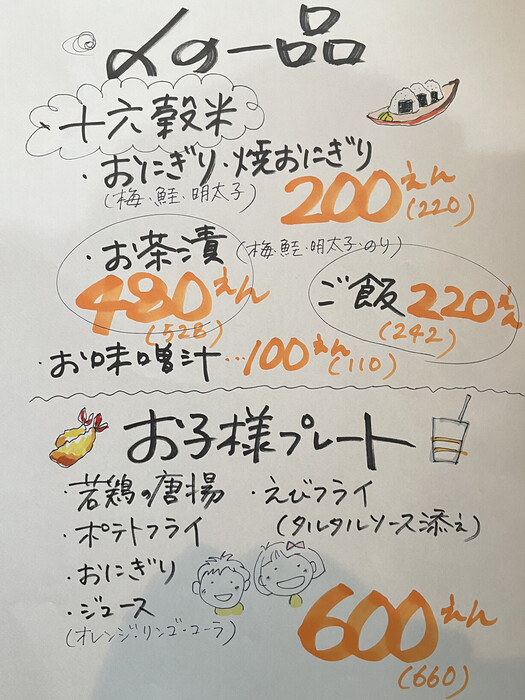 〆の一品
十六穀米
・おにぎり・焼おにぎり
(梅・鮭・明太子)
200えん
(220)
・お茶漬(梅・鮭・明太子・のり)
480えん
(528)
ご飯220えん
(242)
・お味噌汁…100えん
(110)
お子様プレート
・若鶏の唐揚
・えびフライ
(タルタルソース添え)
・ポテトフライ
・おにぎり
・ジュース
(オレンジ・リンゴ・コーラ)
600えん
(660)